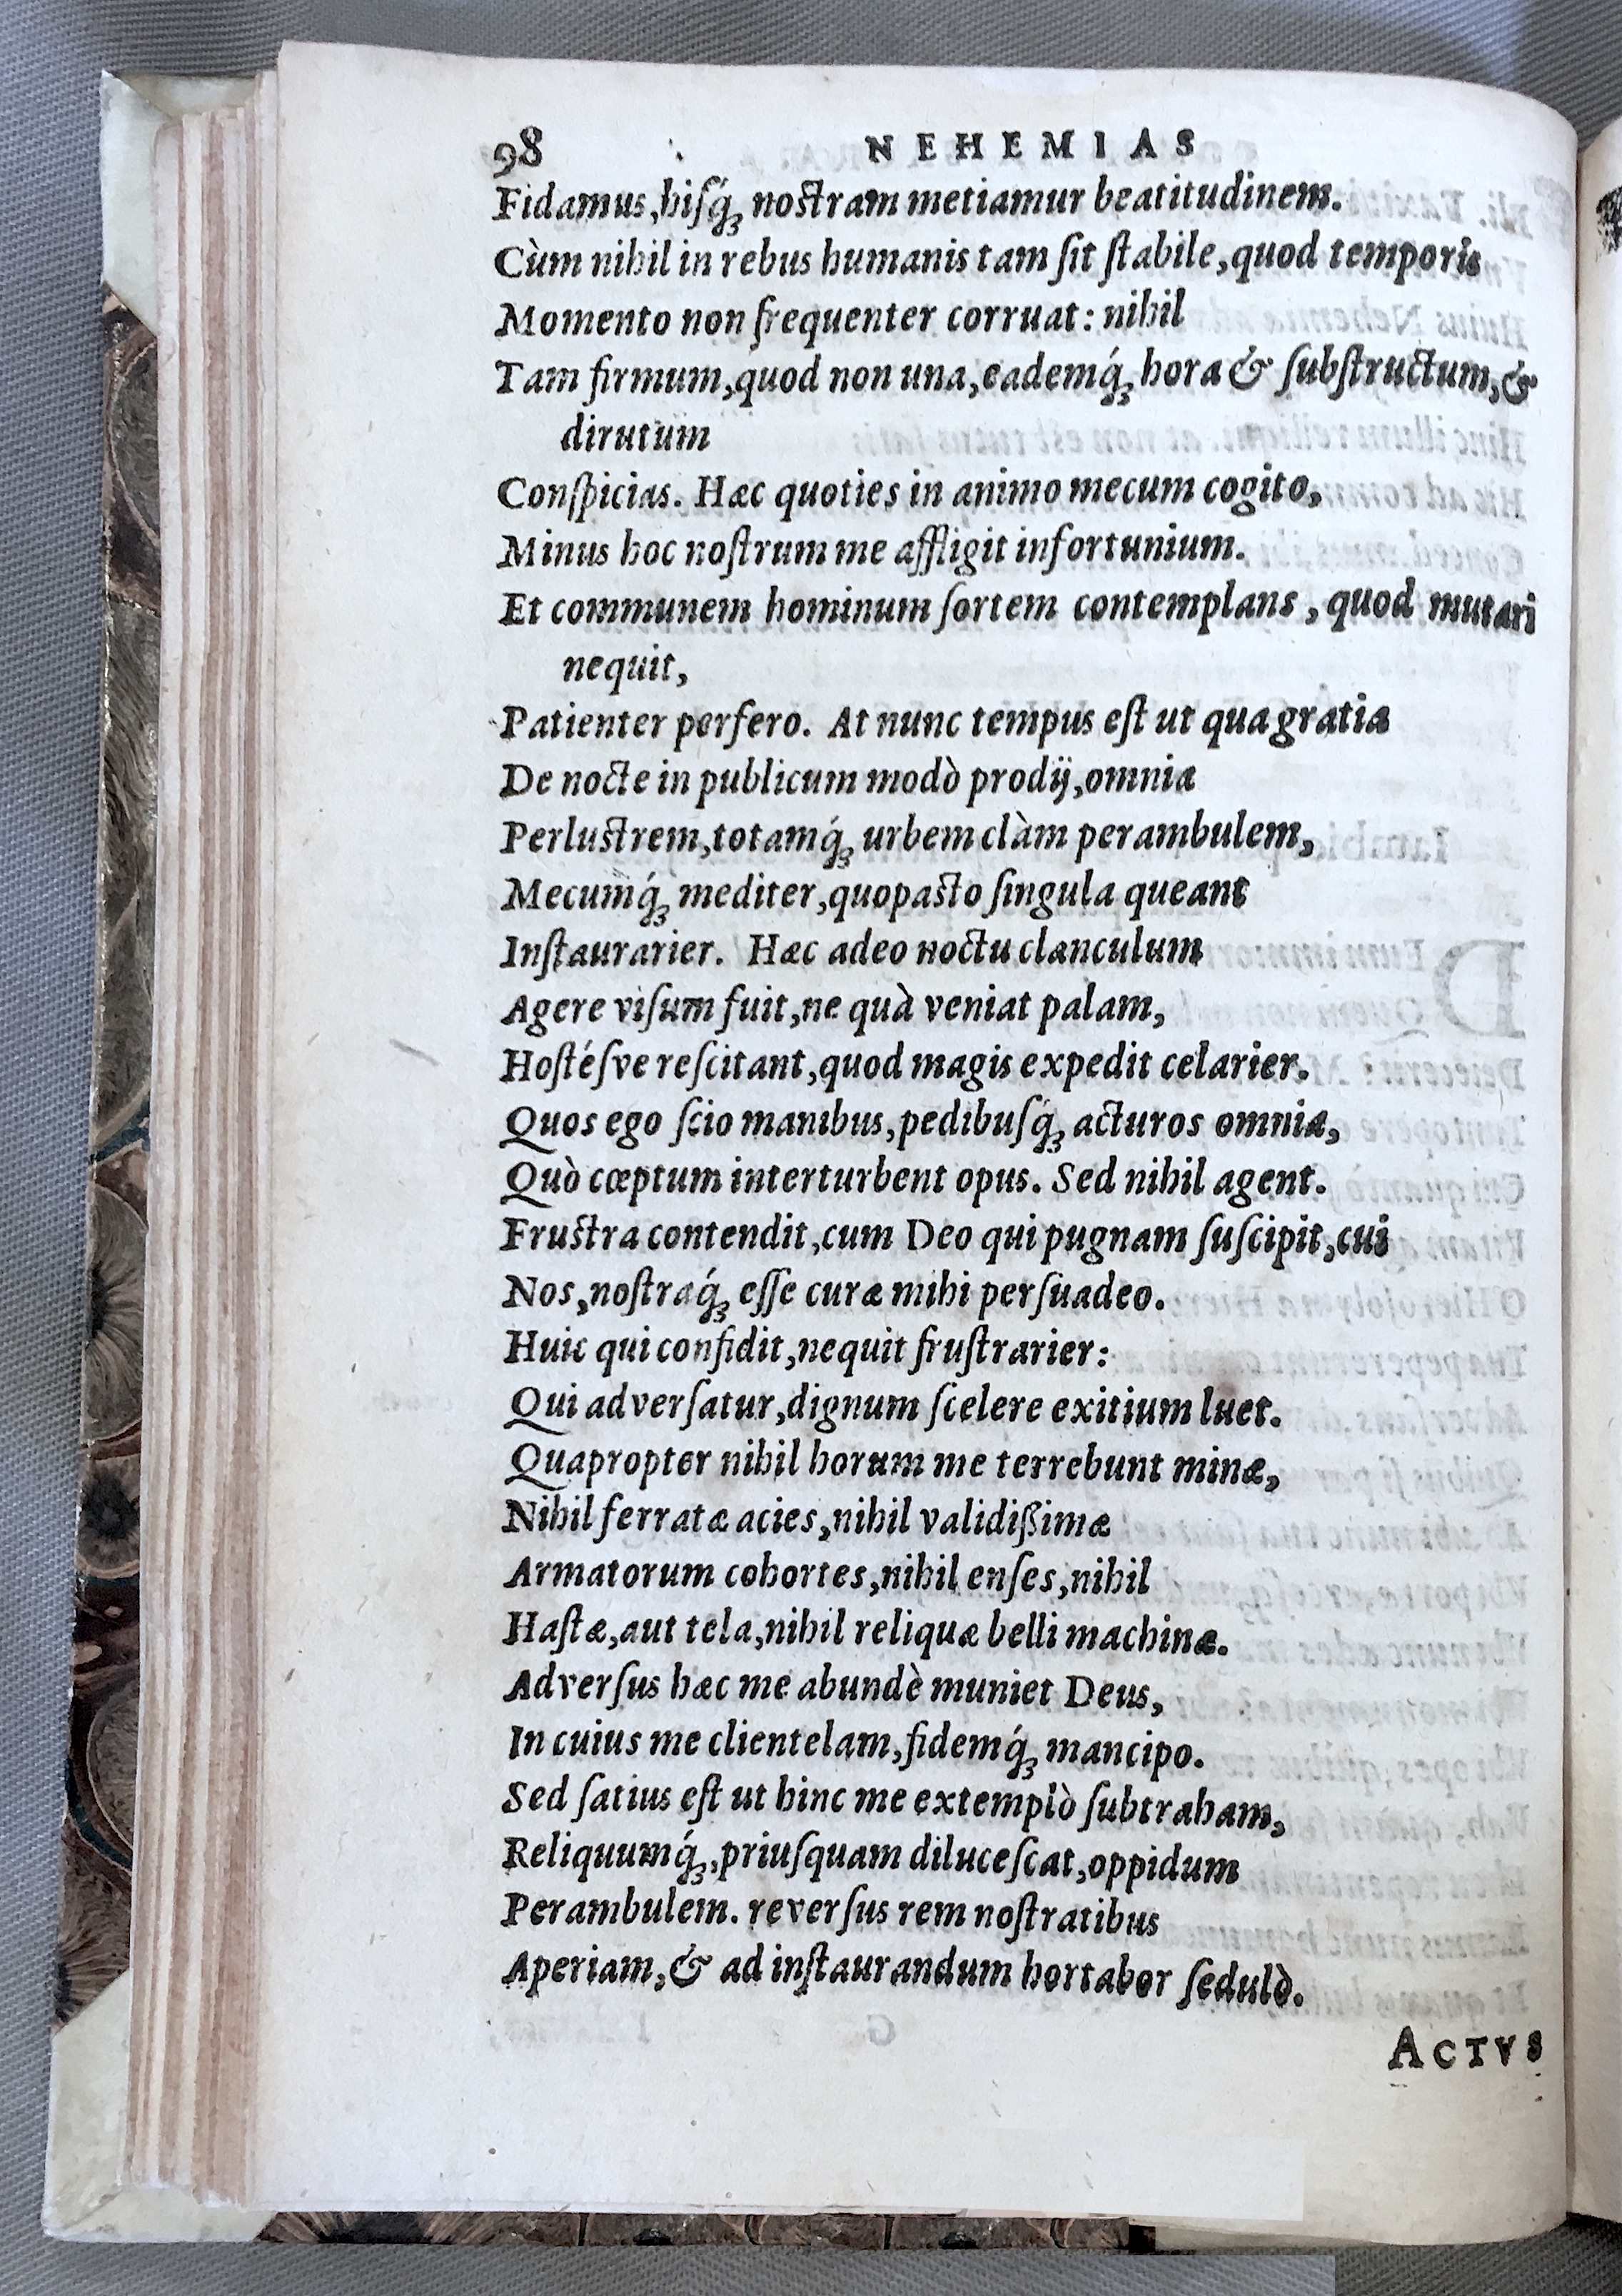 98 NEHEMIAS
Fidamus, hiſq́ꝫ noſtram metiamur beatitudinem.
Cùm nihil in rebus humanis tam ſit ſtabile, quod temporis
Momento non frequenter corruat: nihil
Tam firmum, quod non una, eademq́ꝫ hora & ſubſtructum, &
dirutum
Conſpicias. Hæc quoties in animo mecum cogito,
Minus hoc noſtrum me affligit infortunium.
Et communem hominum ſortem contemplans, quod mutari
nequit,
Patienter perfero. At nunc tempus eſt ut qua gratia
De nocte in publicum modò prodij, omnia
Perluſtrem, totamq́ꝫ urbem clàm perambulem,
Mecumq́ꝫ mediter, quopacto ſingula queant
Inſtaurarier. Hæc adeo noctu clanculum
Agere viſum fuit, ne quà veniat palam,
Hoſtéſve reſcitant, quod magis expedit celarier.
Quos ego ſcio manibus, pedibuſq́ꝫ acturos omnia,
Quò cœptum interturbent opus. Sed nihil agent.
Fruſtra contendit, cum Deo qui pugnam ſuſcipit, cui
Nos, noſtraq́ꝫ eſſe curæ mihi perſuadeo.
Huic qui confidit, nequit fruſtrarier:
Qui adverſatur, dignum ſcelere exitium luet.
Quapropter nihil horum me terrebunt minæ,
Nihil ferratæ acies, nihil validißimæ
Armatorum cohortes, nihil enſes, nihil
Haſtæ, aut tela, nihil reliquæ belli machinæ.
Adverſus hæc me abundè muniet Deus,
In cuius me clientelam, fidemq́ꝫ mancipo.
Sed ſatius eſt ut hinc me extemplò ſubtraham,
Reliquumq́ꝫ, priuſquam diluceſcat, oppidum
Perambulem. reverſus rem noſtratibus
Aperiam, & ad inſtaurandum hortabor ſedulò.
ACTVS